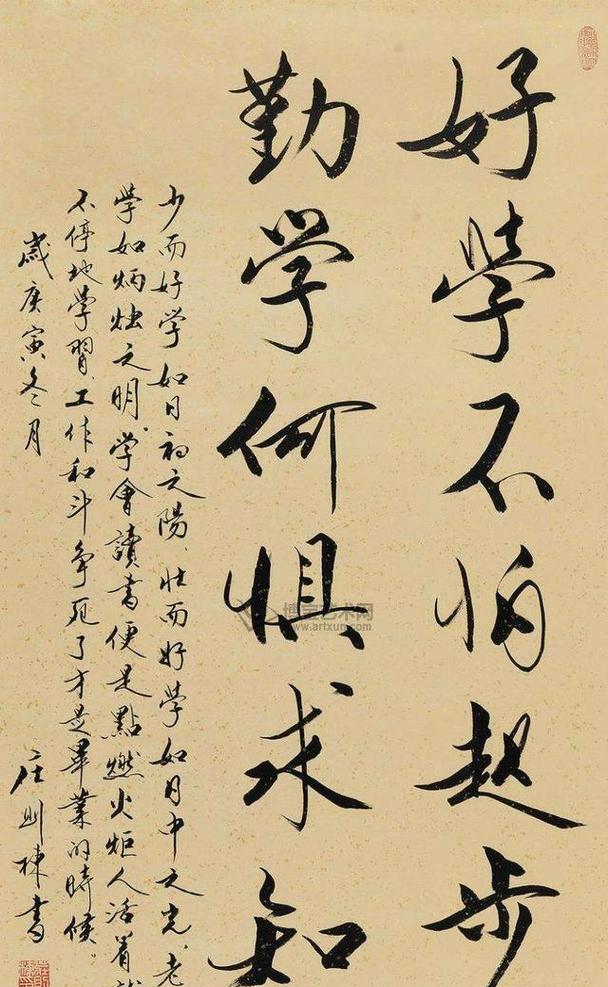 好學不怕起步
勤学何惧求知
少而好学如日初之陽、壮而好学如日中之光、老
学如炳烛之明。学會讀書便是點燃火炬人活着就
不停地学習、工作和斗争死了才是畢業的時候。
歲庚寅冬月
庄则栋書
博宝艺术网
www.artxun.com